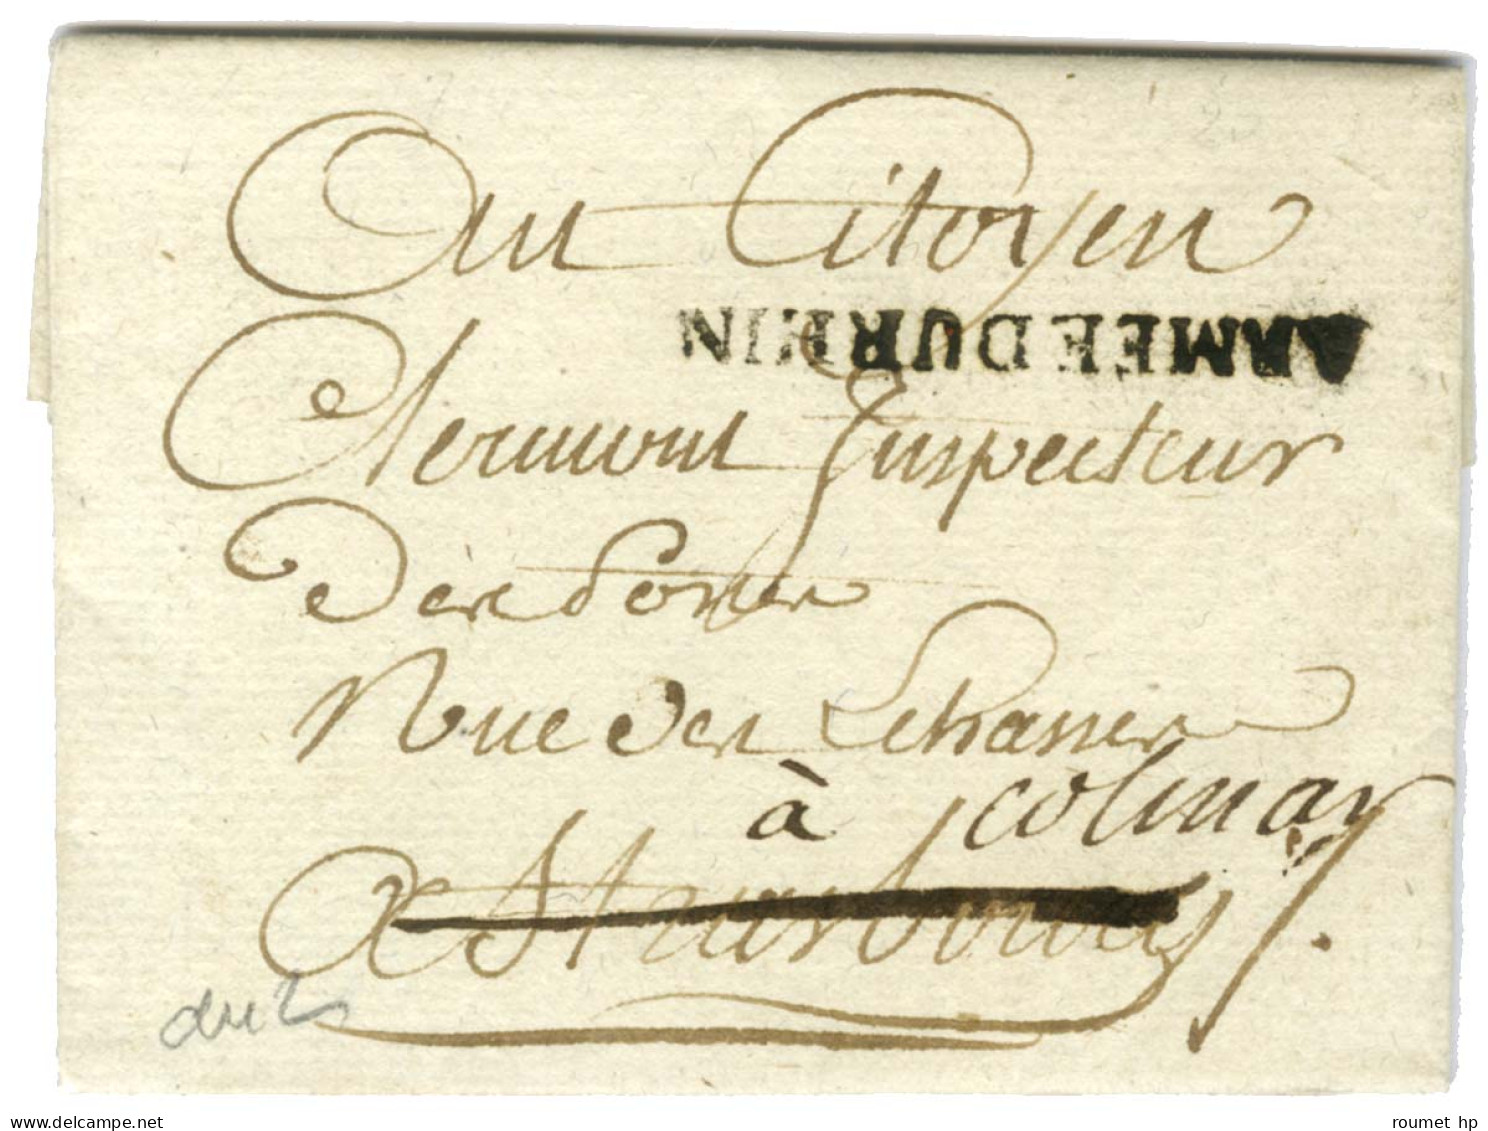 Au Citoyen
ARMEE DU RHIN
Clermont Inspecteur
Des Postes
Rue Des
à Colmar
A Strasbourg
www.delcampe.net
roumet hp